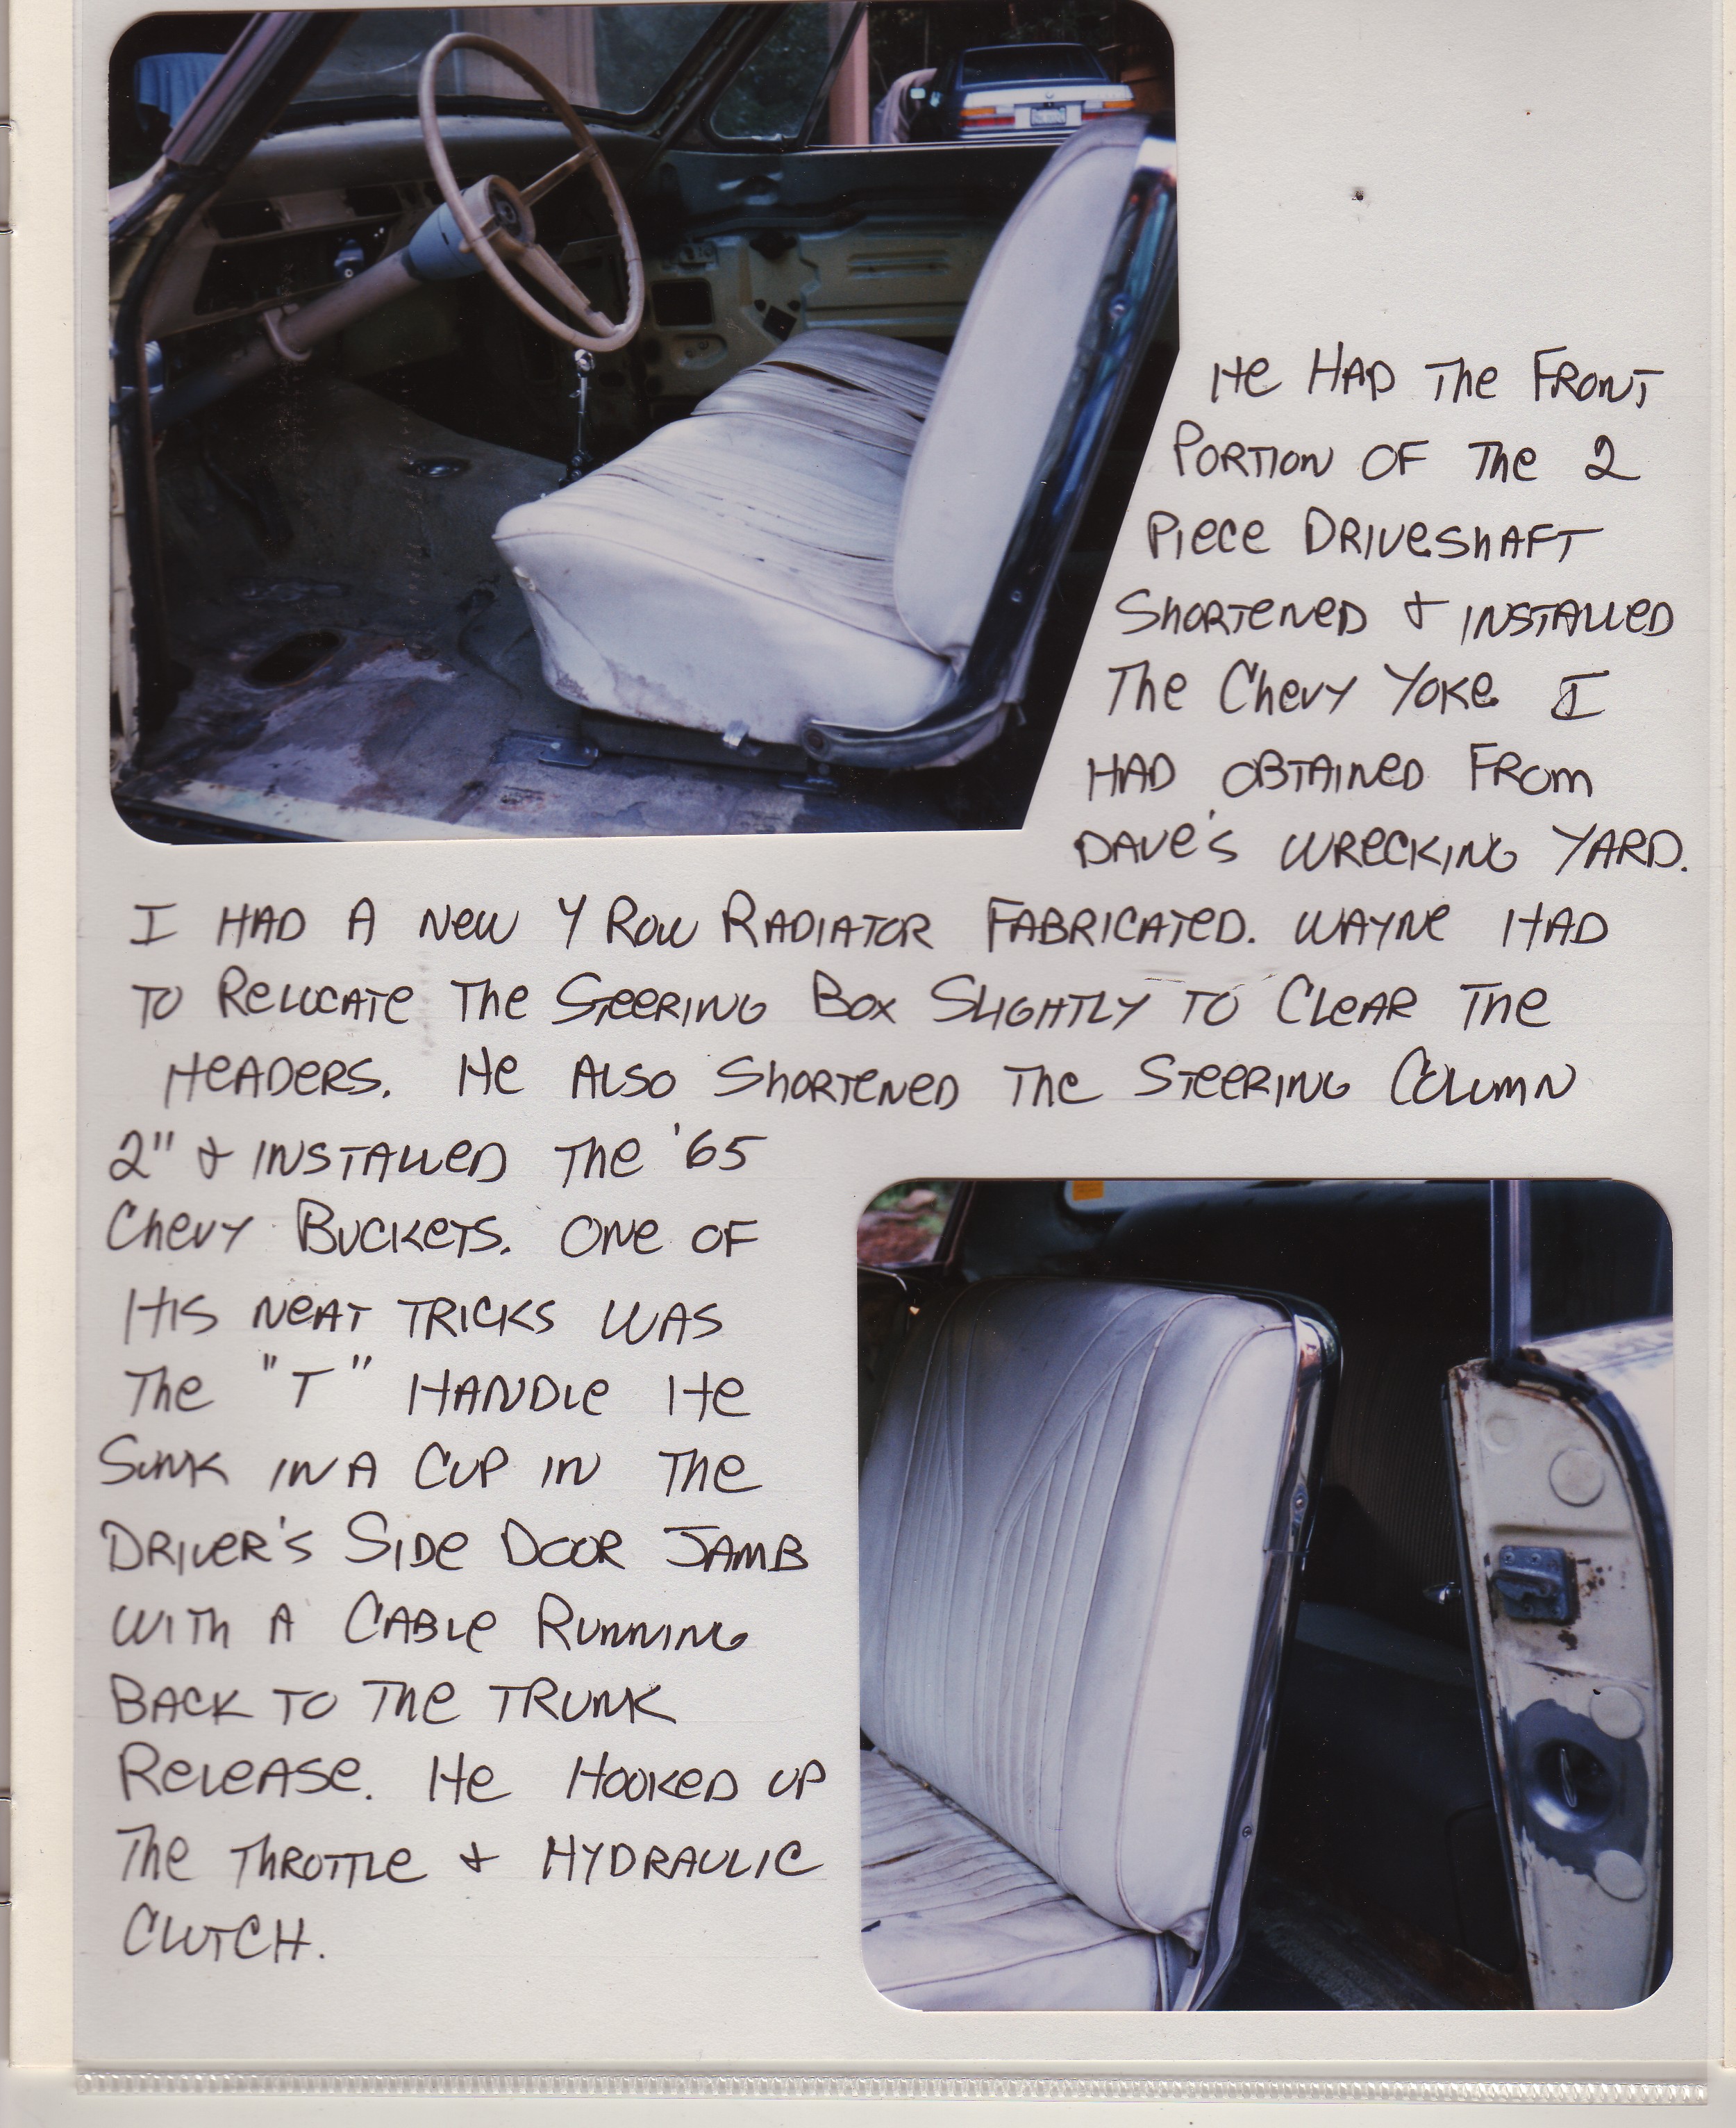 He HAD The FRONT
PORTION OF The 2
Piece DRIVeshAFT
ShORTeneD & INSTALLeD
The Chevy YOKe I
HAD OBTAINeD FROm
DAVe's WReCKING YARD.
I HAD A New 4 Row RADIATOR FABRICATeD. WAYNe HAD
TO ReLOCATe The STeeRING BOx SLIGHTLY TO CLeAR The
HeADeRS. He ALSO ShORTeNeD The STeeRING COLumN
2" & INSTALLeD The '65
Chevy BUCKeTS. ONe OF
HIS NeAT TRICKS WAS
The "T" HANDLe He
SuNK IN A CUP IN The
DRIVeR'S SIDe DOOR JAMB
WITh A CABLe RuNNING
BACK TO The TRuNK
ReLeASe. He HOOKeD UP
The ThROTTLe & HYDRAULIC
CLUTCH.